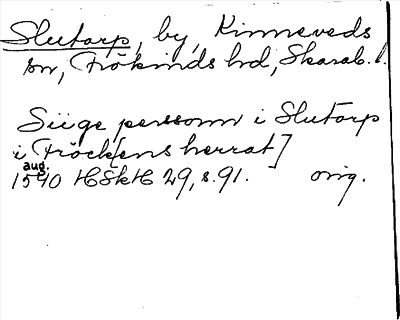 Slutarp, by, Kinneveds
sn, Frökinds hd, Skarab. l.
Siige perssonn i Slutorp
i Fröck[ens herrat]
aug.
1540 HSkH 29, s. 91. orig.